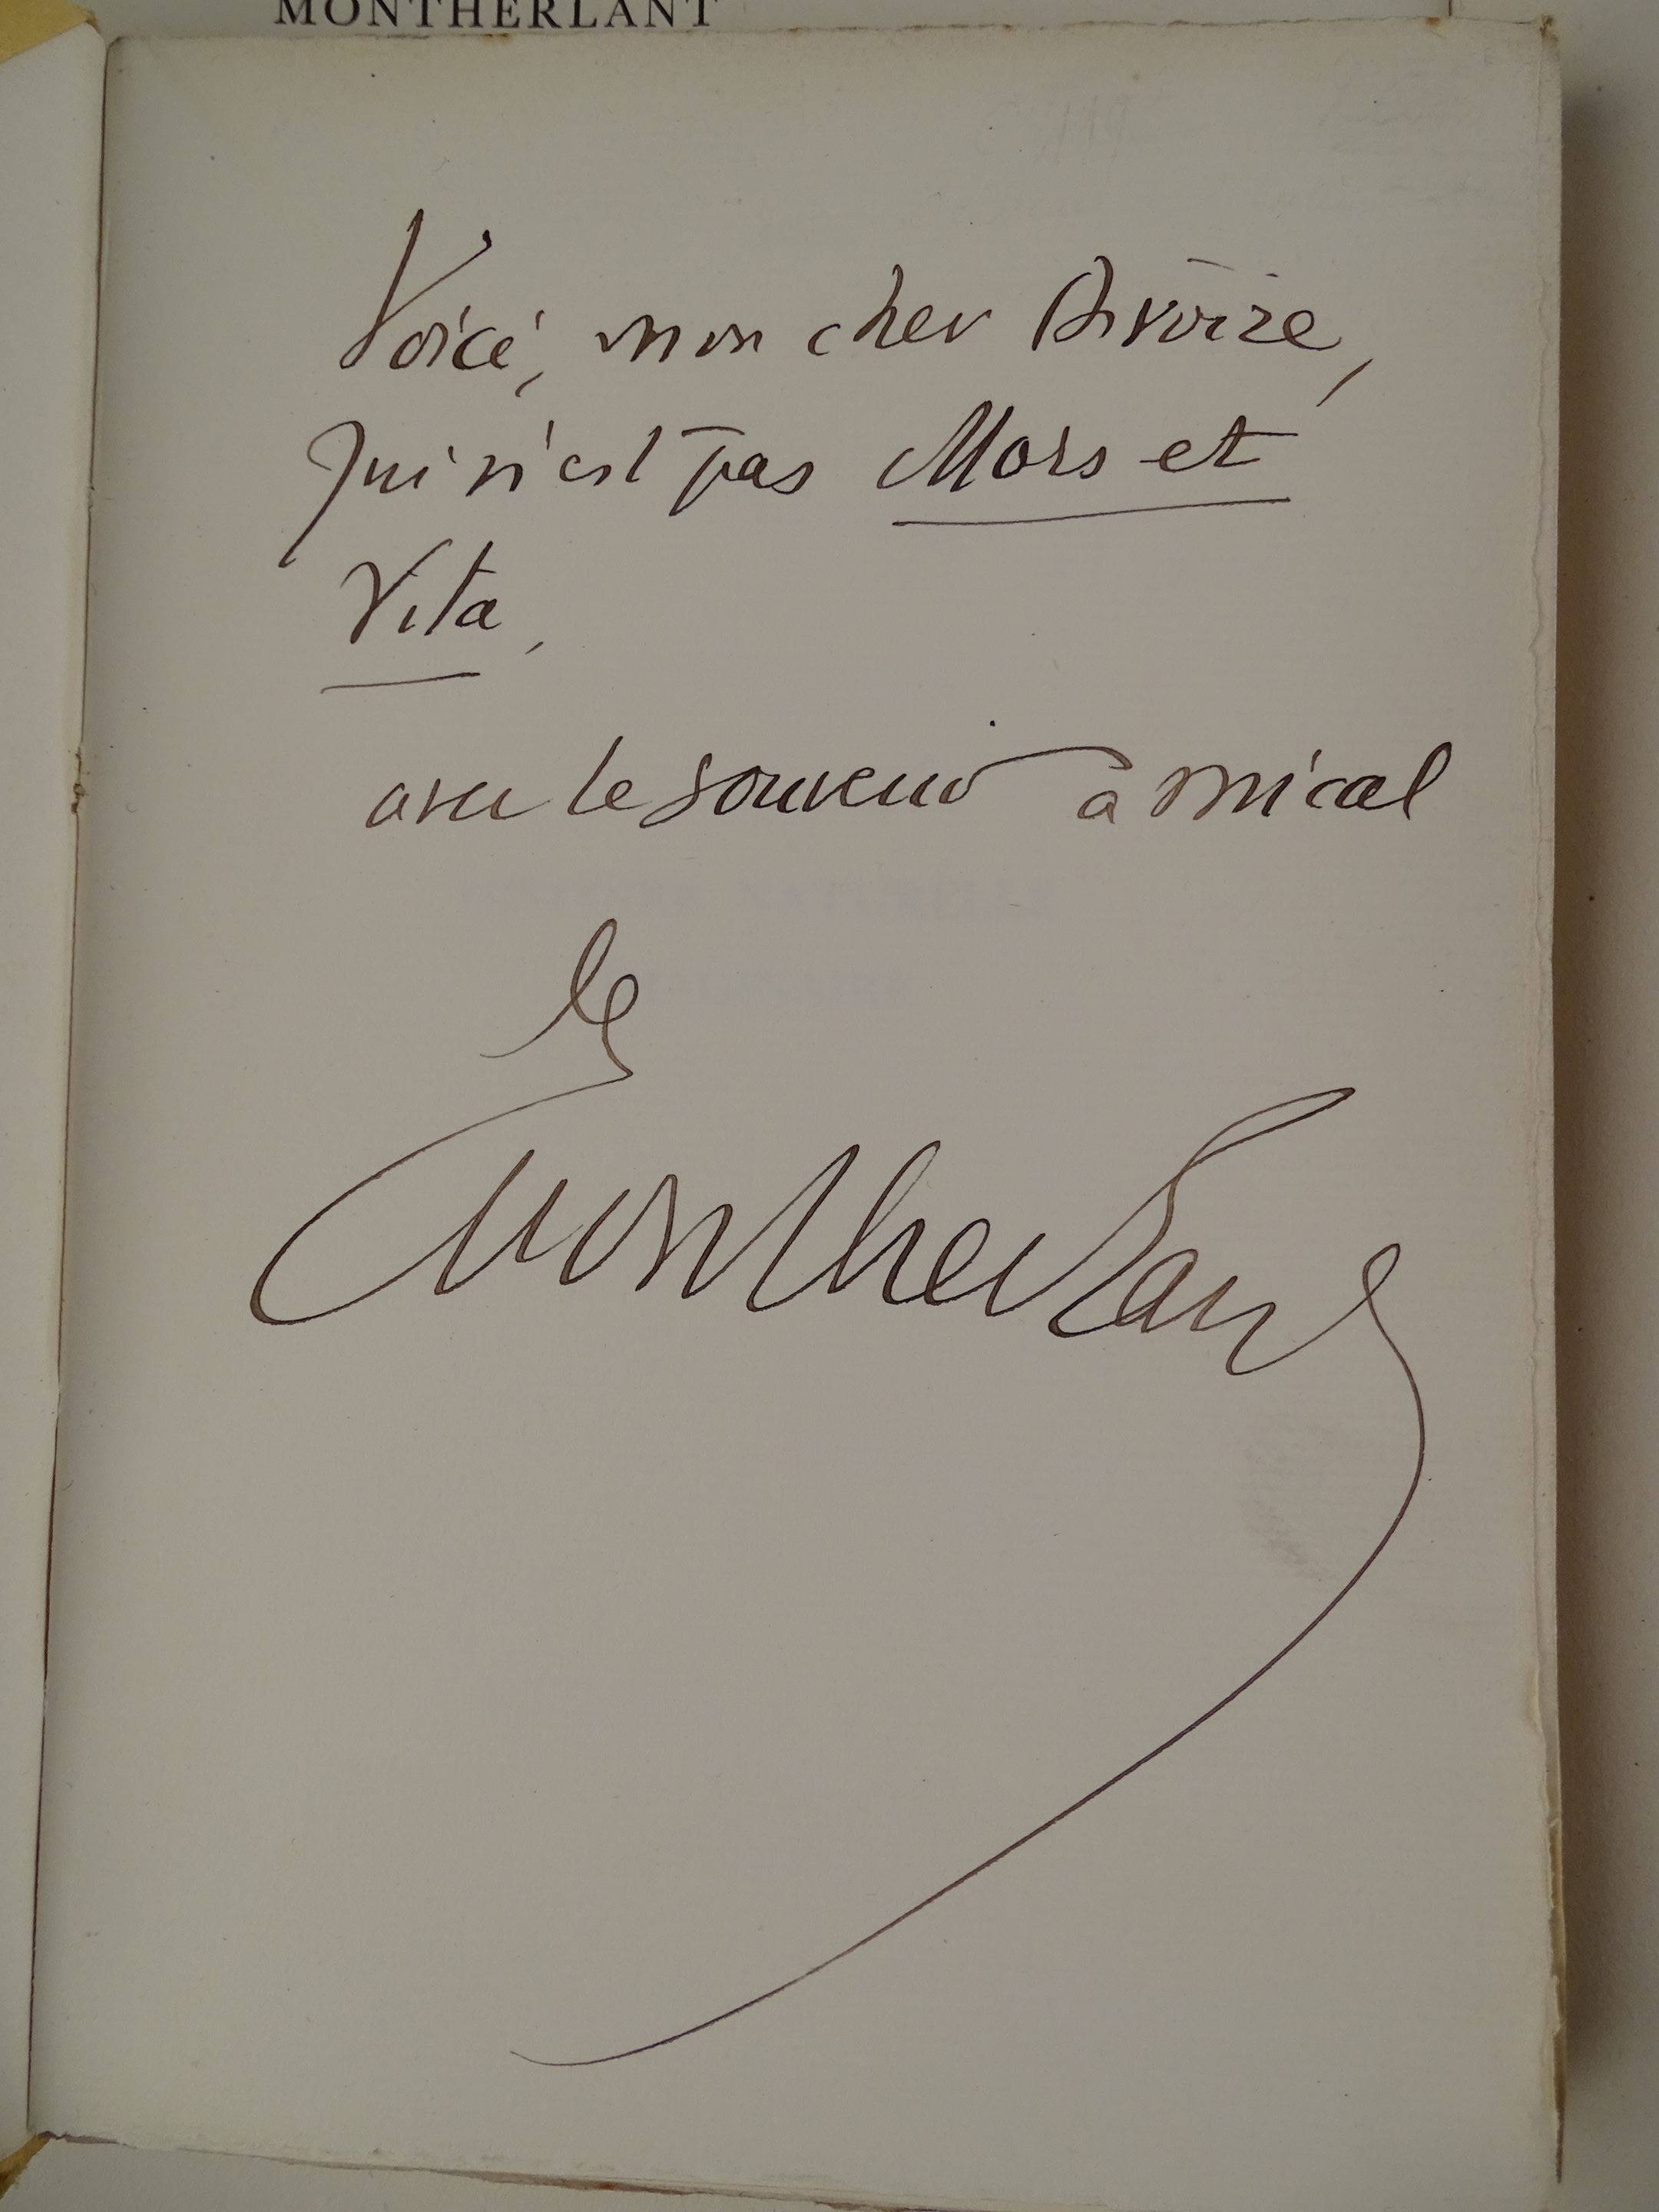 MONTHERLANT
Voici, mon cher Divoire,
qui n'est pas Mors et
Vita,
avec le souvenir amical
de
Montherlant